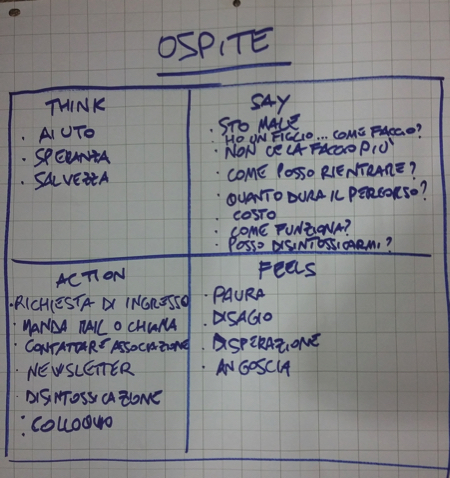 OSPITE
THINK
· AIUTO
· SPERANZA
· SALVEZZA
SAY
· STO MALE
· HO UN FIGLIO... COME FACCIO?
· NON CE LA FACCIO PIÙ
· COME POSSO RIENTRARE?
· QUANTO DURA IL PERCORSO?
· COSTO
· COME FUNZIONA?
· POSSO DISINTOSSICARMI?
ACTION
· RICHIESTA DI INGRESSO
· MANDA MAIL O CHIAMA
· CONTATTARE ASSOCIAZIONE
· NEWSLETTER
· DISINTOSSICAZIONE
· COLLOQUIO
FEELS
· PAURA
· DISAGIO
· DISPERAZIONE
· ANGOSCIA